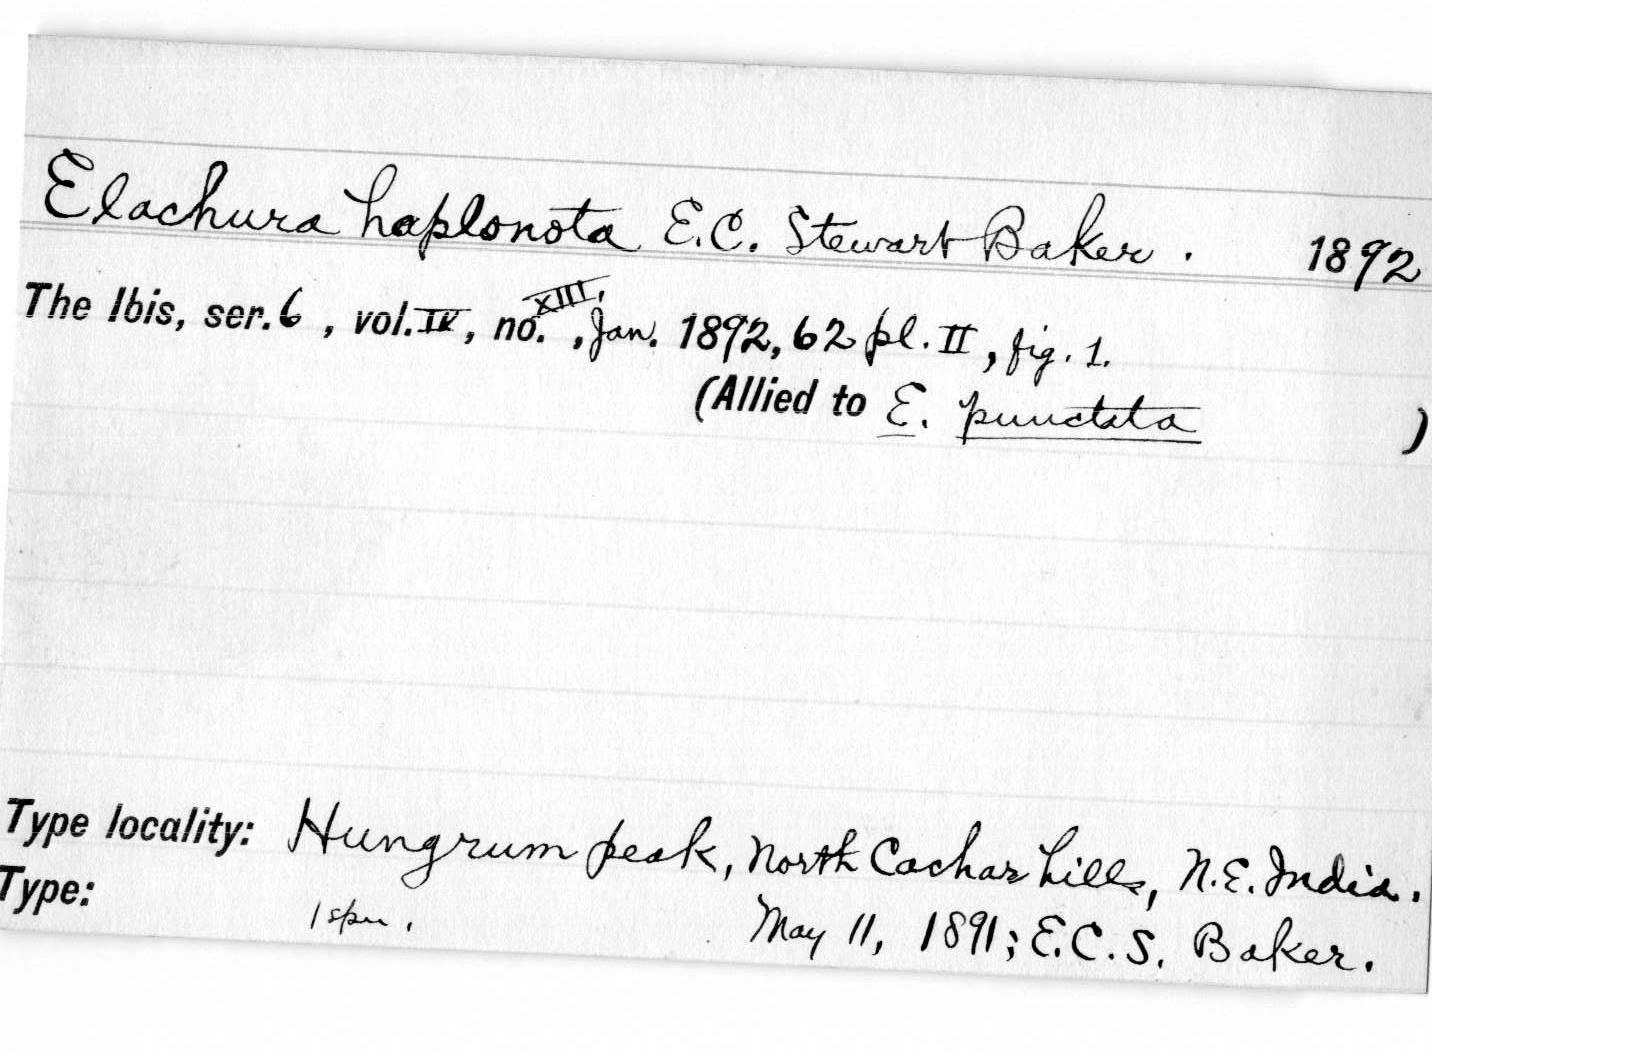 Elachura haplonota E.C. Stewart Baker. 1892
The Ibis, ser. 6, vol. IV, no. XIII, Jan. 1892, 62 pl. II, fig. 1.
(Allied to E. punctata )
Type locality: Hungrum peak, North Cachar hills, N.E. India.
Type: 1 spm. May 11, 1891; E.C.S. Baker.